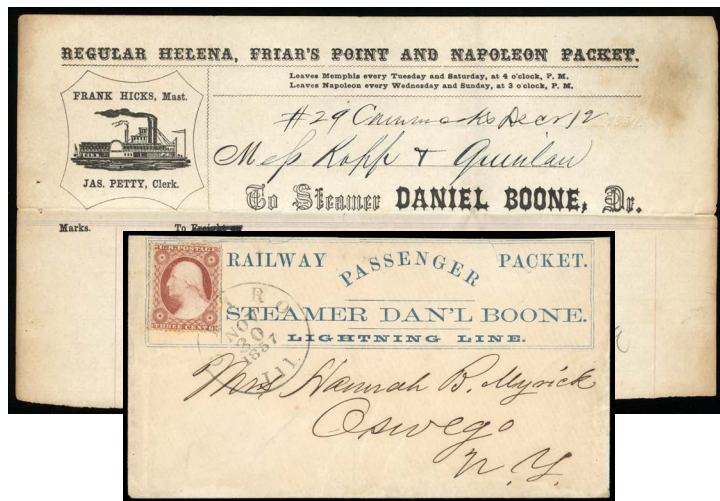 REGULAR HELENA, FRIAR'S POINT AND NAPOLEON PACKET.
Leaves Memphis every Tuesday and Saturday, at 4 o'clock, P. M.
Leaves Napoleon every Wednesday and Sunday, at 3 o'clock, P. M.
FRANK HICKS, Mast.
JAS. PETTY, Clerk.
#29 Dec 12
Mess Kopp & Quinlan
To Steamer DANIEL BOONE, Dr.
Marks.
To Freight
U.S. POSTAGE
THREE CENTS
RAILWAY PASSENGER PACKET.
STEAMER DAN'L BOONE.
LIGHTNING LINE.
CAIRO Ill.
NOV
30
1857
Mrs Hannah B. Myrick
Oswego
N.Y.